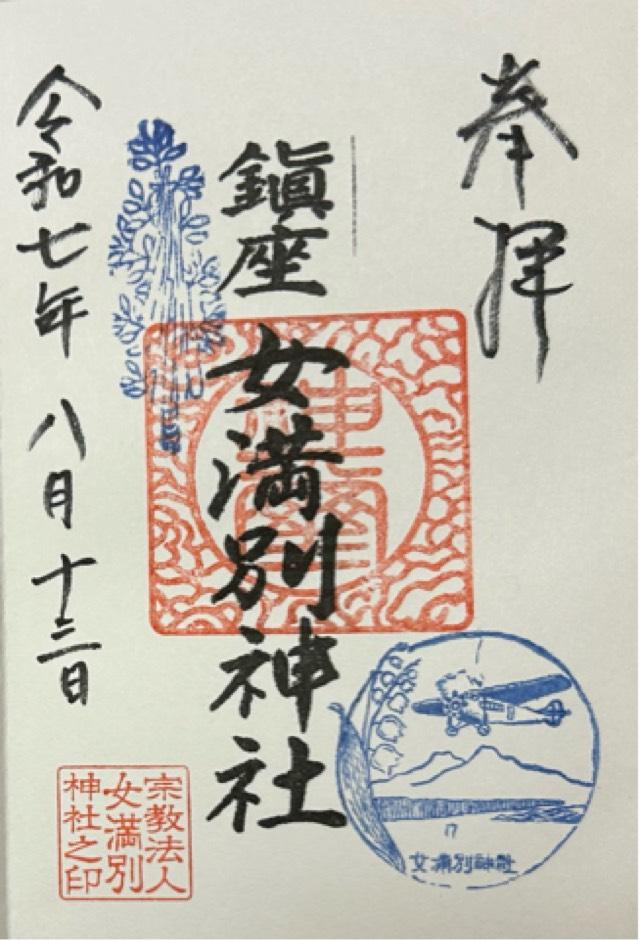 奉拝
鎭座 女満別神社
令和七年 八月 十三日
宗教法人
女満別
神社之印
女満別神社